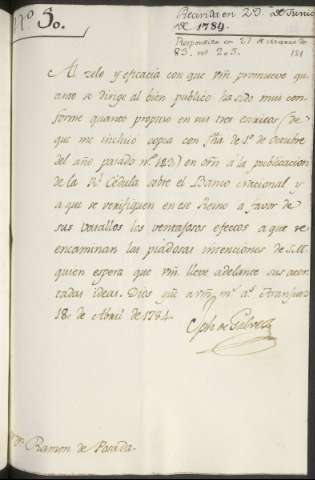 nº 50.
Recivida en 23. de Junio
de 1784.
Respondida en 27 de
85. nº 205.
Al zelo y eficacia con que vm̃ promueve qu-
anto se dirige al bien publico ha sido mui con-
forme quanto propuso en sus tres escritos (de
que me incluió copia con fha de 1º de Octubre
del año pasado nº 123) en orñ a la publicacion
de la Rl Cédula sobre el Banco nacional y
a que se verifiquen en ese Reino a favor de
sus vasallos los ventajosos efectos a que se
encaminan las piadosas intenciones de S.M.
quien espera que vm̃ lleve adelante sus acer-
tadas ideas. Dios gũe a vm̃ ms as Aranjuez
18 de Abril de 1784.
Jph de Galvez
Dn Ramon de Posada.